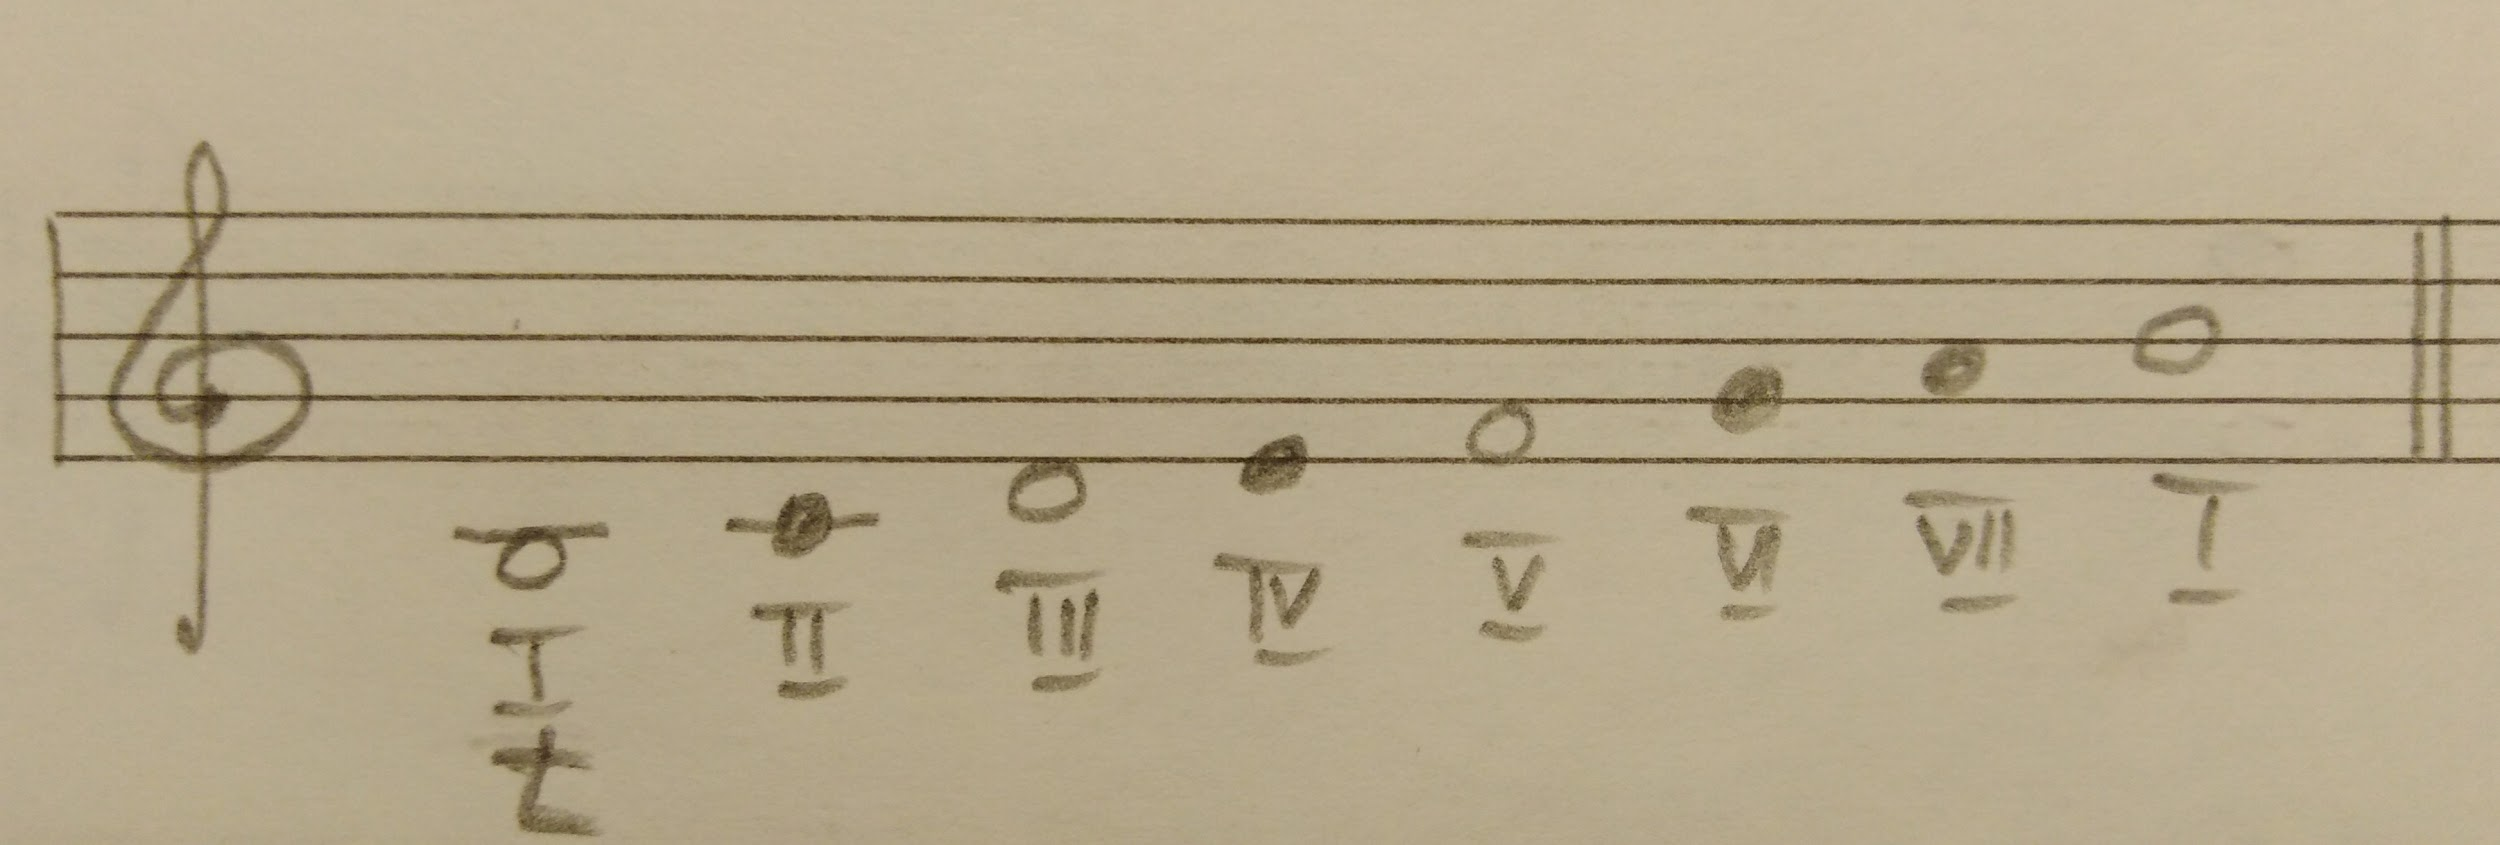 I II III IV V VI VII I
t